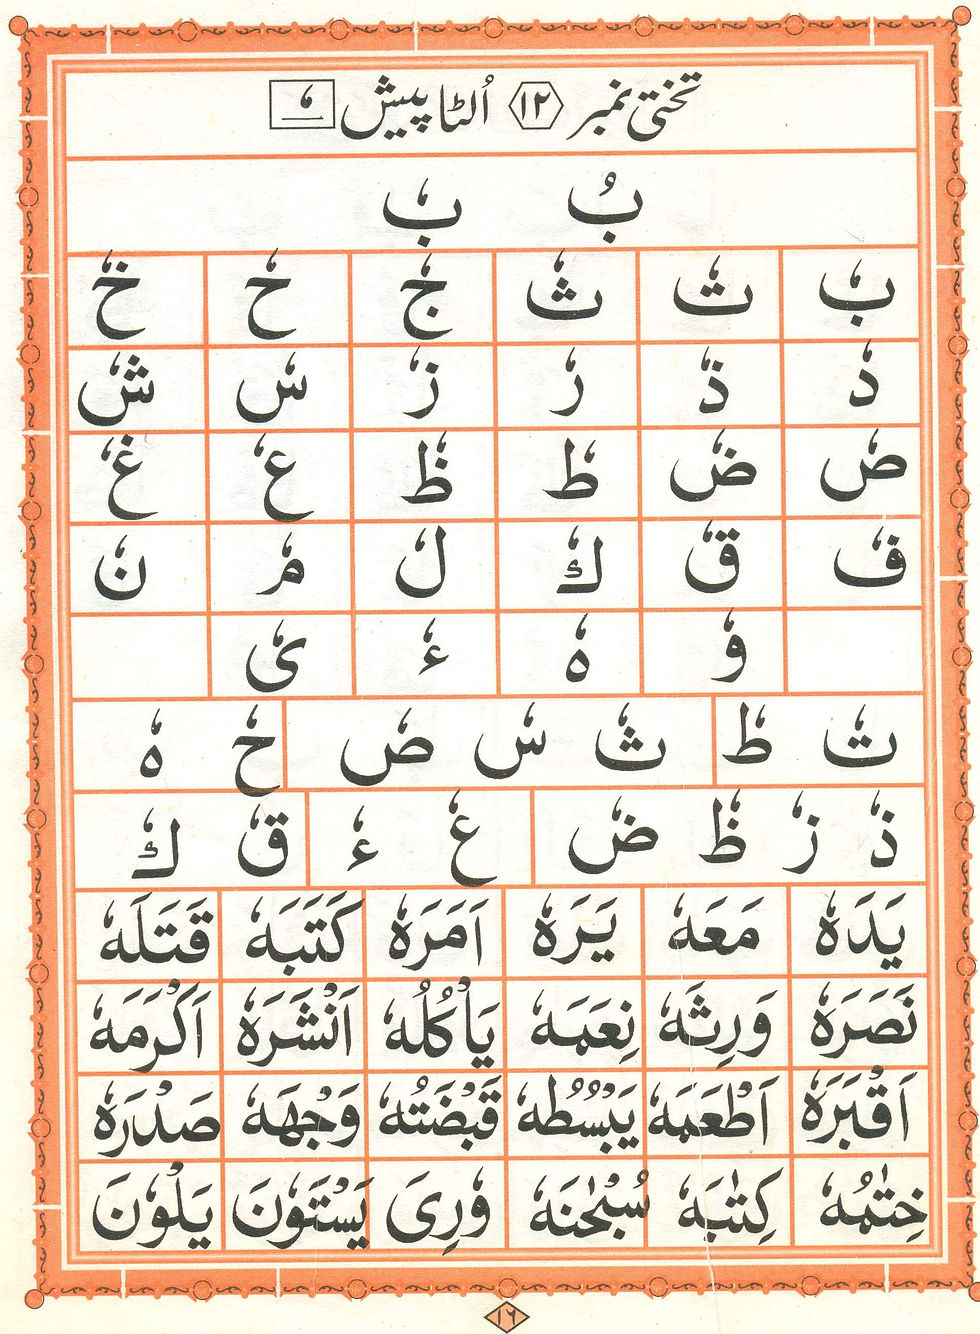 تختی نمبر ۱۲ اُلٹا پیش ◌ٗ
بُ بٗ
بٗ تٗ ثٗ جٗ حٗ خٗ
دٗ ذٗ رٗ زٗ سٗ شٗ
صٗ ضٗ طٗ ظٗ عٗ غٗ
فٗ قٗ كٗ لٗ مٗ نٗ
وٗ هٗ ءٗ یٗ
تٗ طٗ ثٗ سٗ صٗ حٗ هٗ
ذٗ زٗ ظٗ ضٗ عٗ ءٗ قٗ كٗ
يَدَهٗ مَعَهٗ يَرَهٗ اَمَرَهٗ كَتَبَهٗ قَتَلَهٗ
نَصَرَهٗ وَرِثَهٗ نِعَمَهٗ يَاْكُلُهٗ اَنْشَرَهٗ اَكْرَمَهٗ
اَقْبَرَهٗ اَطْعَمَهٗ يَبْسُطُهٗ قَبْضَتُهٗ وَجْهَهٗ صَدْرَهٗ
خِتٰمُهٗ كِتٰبَهٗ سُبْحٰنَهٗ وٗرِیَ يَسْتَوٗنَ يَلْوٗنَ
۱۶